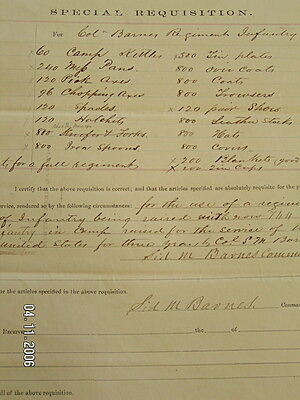 SPECIAL REQUISITION.
For Col Barnes Regiment Infantry
60 Camp Kettles 500 Tin plates
240 Mess Pans. 800 Over Coats
120 Pick Axes 800 Coats
96 Chopping Axes 800 Trowsers
120 Spades. 120 pair Shoes
120 Hatchets 800 Leather Stocks
800 Knives & Forks. 800 Hats
800 Iron Spoons 800
200 Blankets (good
ts for a full regiment 200 Tin Cups
I certify that the above requisition is correct; and that the articles specified are absolutely requisite for the p
service, rendered so by the following circumstances: for the use of a regime
of Infantry being raised with now 744
in Camp raised for the service of th
united States for three years by Col. S. M. Bar
Sid M Barnes
ue the articles specified in the above requisition.
Sid M Barnes. Comma
Receive the of
ll of the above requisition.
04.11.2006